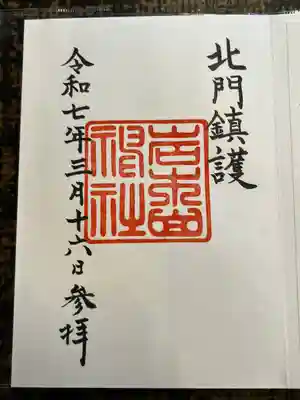 北門鎮護
岩木山神社
令和七年三月十六日参拝